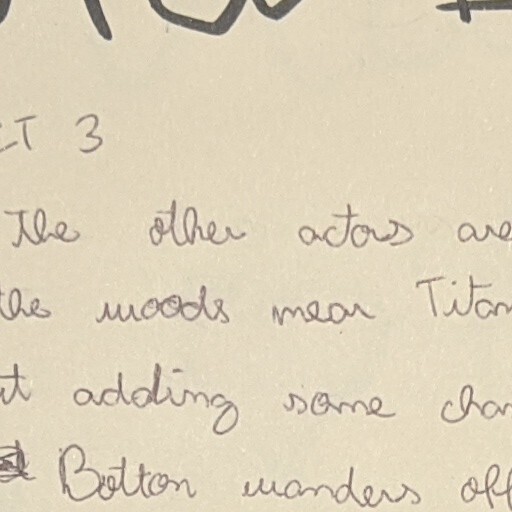 CT 3
The other actors are
the woods near Titan
t adding some chan
Botton wanders off